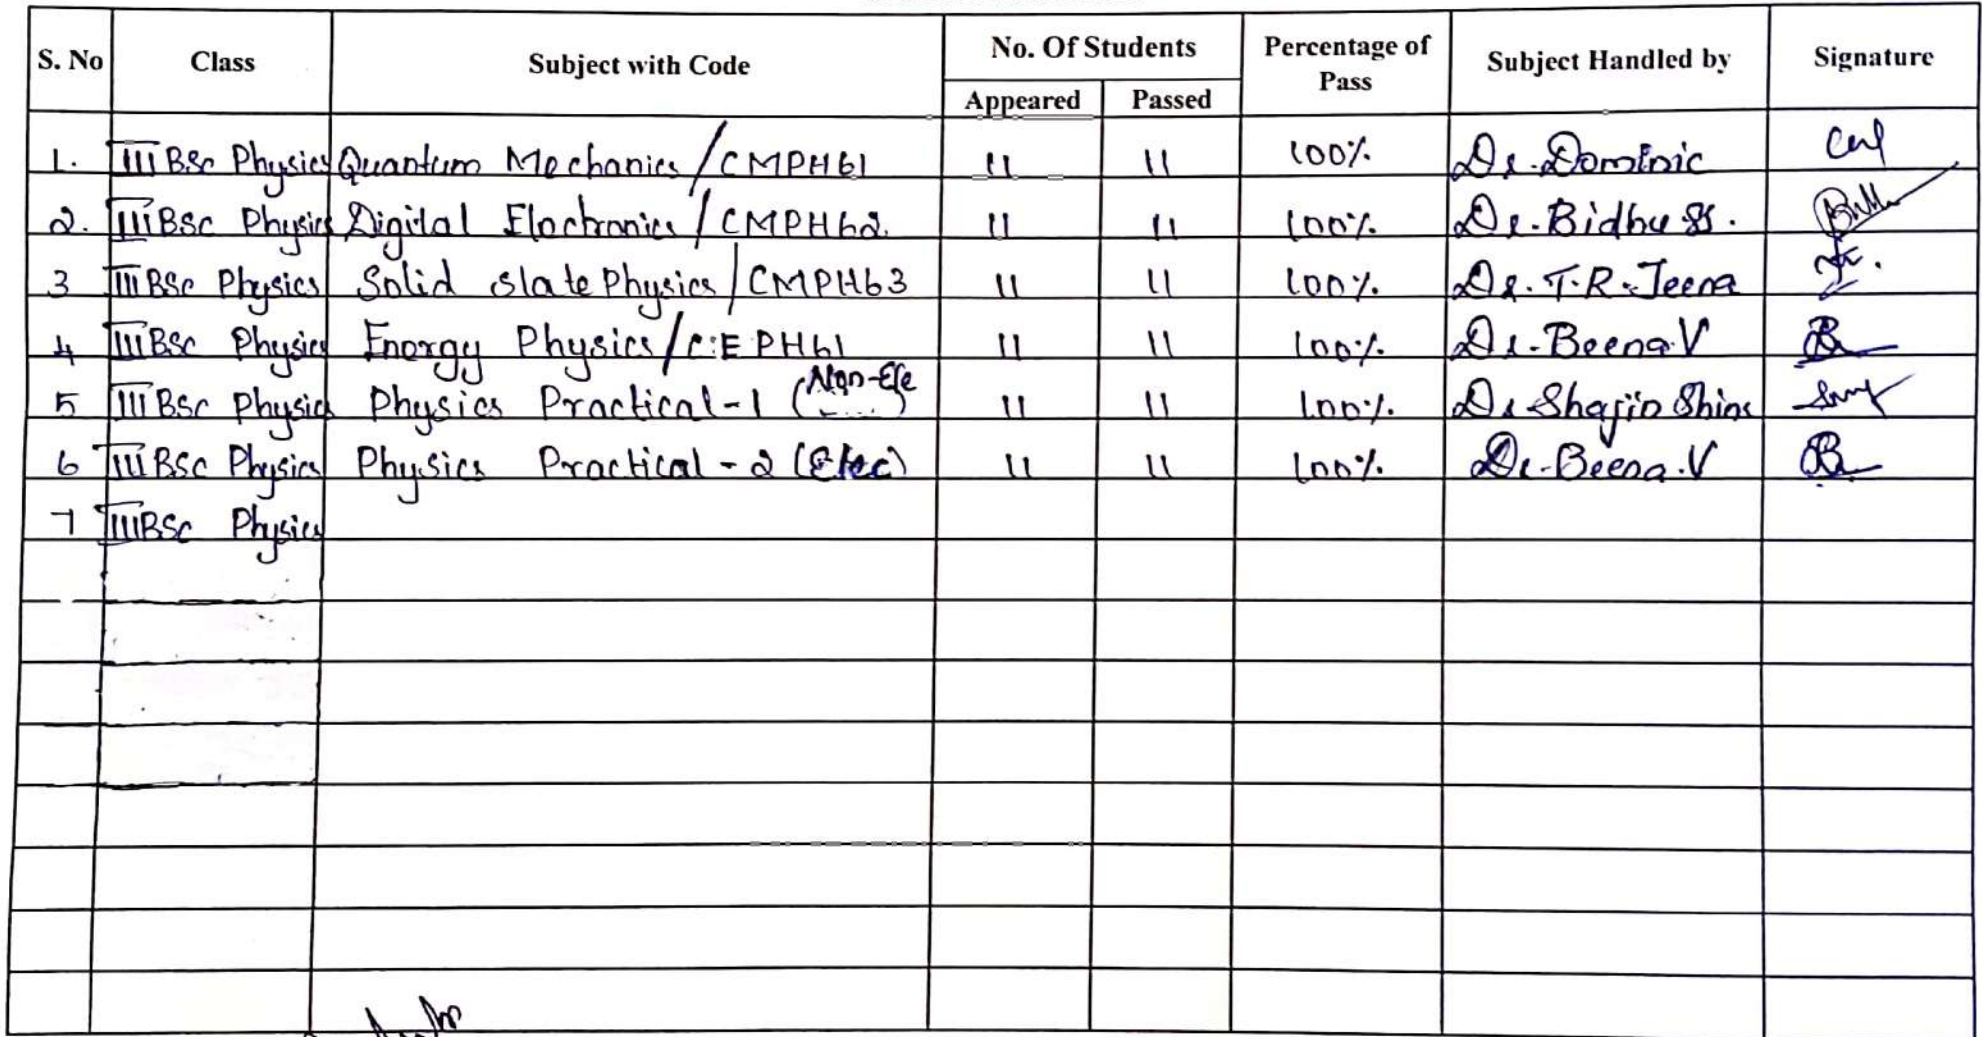 S. No Class Subject with Code No. Of Students Percentage of Pass Subject Handled by Signature
Appeared Passed
1. III BSc Physics Quantum Mechanics / CMPH61 11 11 100% Dr. Dominic
2. III BSc Physics Digital Electronics / CMPH62 11 11 100% Dr. Bidhu SS.
3 III BSc Physics Solid state Physics / CMPH63 11 11 100% Dr. T.R. Jeena
4 III BSc Physics Energy Physics / CEPH61 11 11 100% Dr. Beena V
5 III BSc Physics Physics Practical - 1 (Non-Ele 11 11 100% Dr Shajin Shine
6 III BSc Physics Physics Practical - 2 (Elec) 11 11 100% Dr. Beena. V
7 III BSc Physics